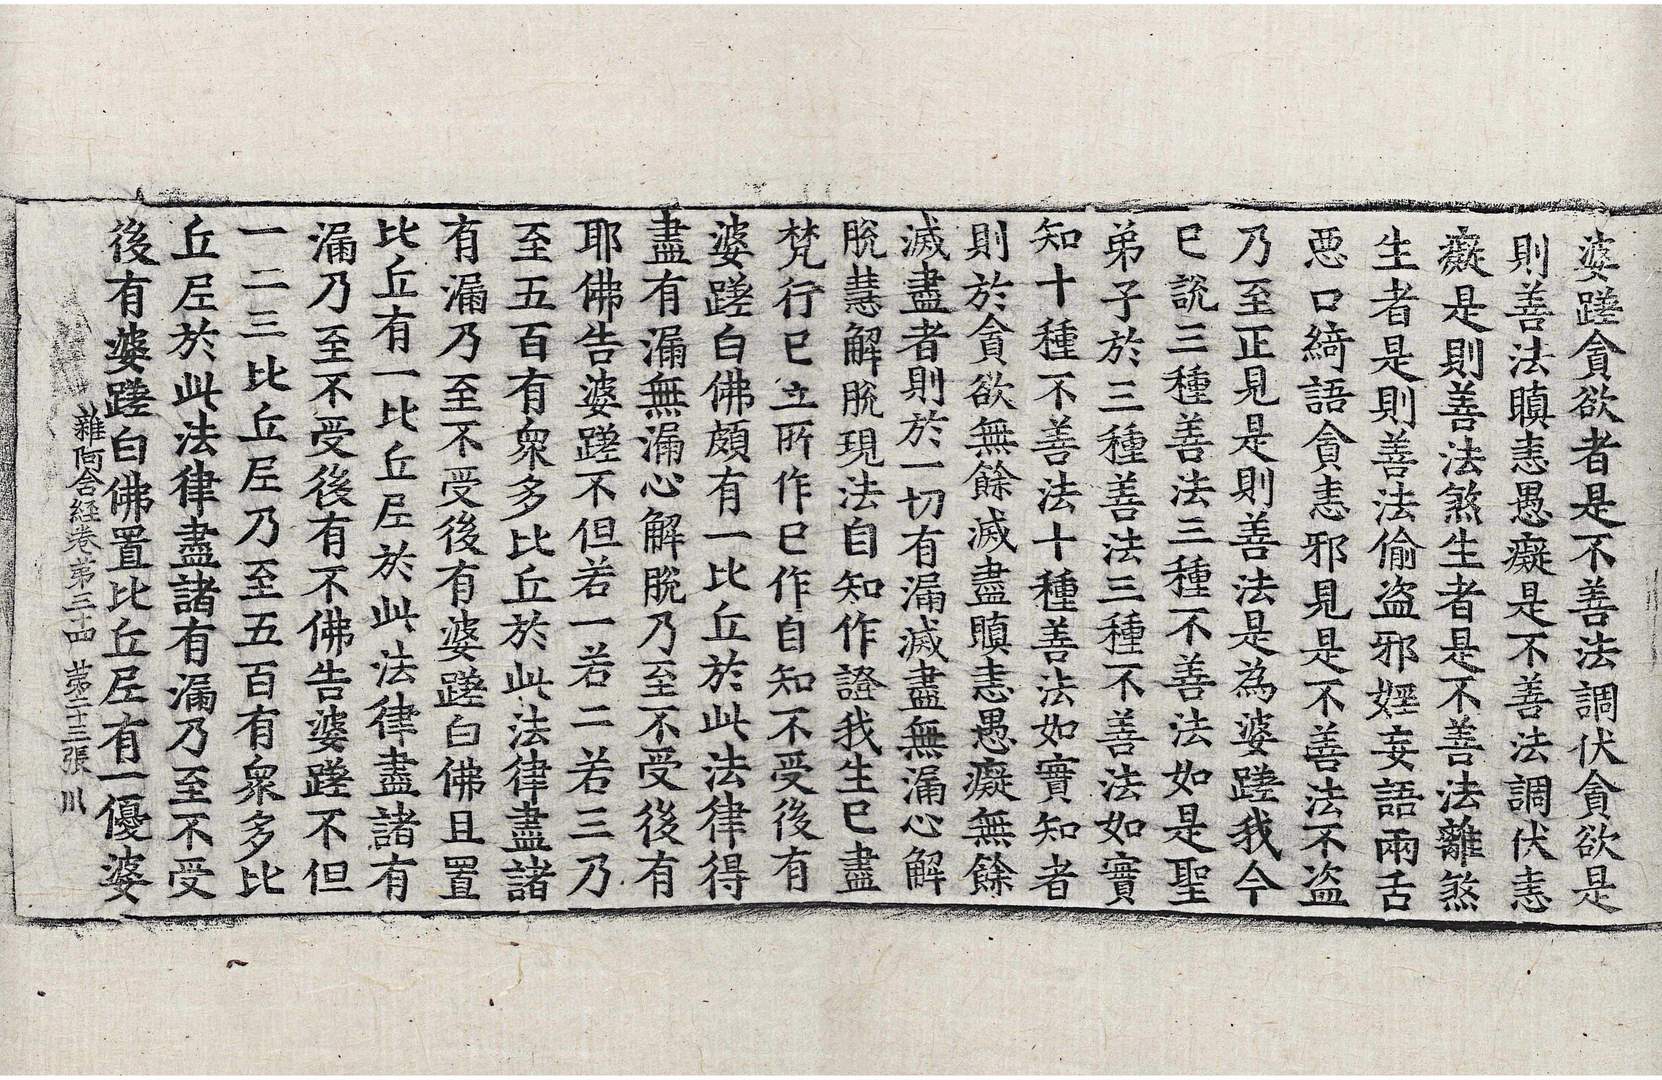 婆蹉貪欲者是不善法調伏貪欲是
則善法瞋恚愚癡是不善法調伏恚
癡是則善法煞生者是不善法離煞
生者是則善法偷盜邪婬妄語兩舌
惡口綺語貪恚邪見是不善法不盜
乃至正見是則善法是為婆蹉我今
已說三種善法三種不善法如是聖
弟子於三種善法三種不善法如實
知十種不善法十種善法如實知者
則於貪欲無餘滅盡瞋恚愚癡無餘
滅盡者則於一切有漏滅盡無漏心解
脫慧解脫現法自知作證我生已盡
梵行已立所作已作自知不受後有
婆蹉白佛頗有一比丘於此法律得
盡有漏無漏心解脫乃至不受後有
耶佛告婆蹉不但若一若二若三乃
至五百有衆多比丘於此法律盡諸
有漏乃至不受後有婆蹉白佛且置
比丘有一比丘尼於此法律盡諸有
漏乃至不受後有不佛告婆蹉不但
一二三比丘尼乃至五百有衆多比
丘尼於此法律盡諸有漏乃至不受
後有婆蹉白佛置比丘尼有一優婆
雜阿含經卷第三十四 第二十三張 川